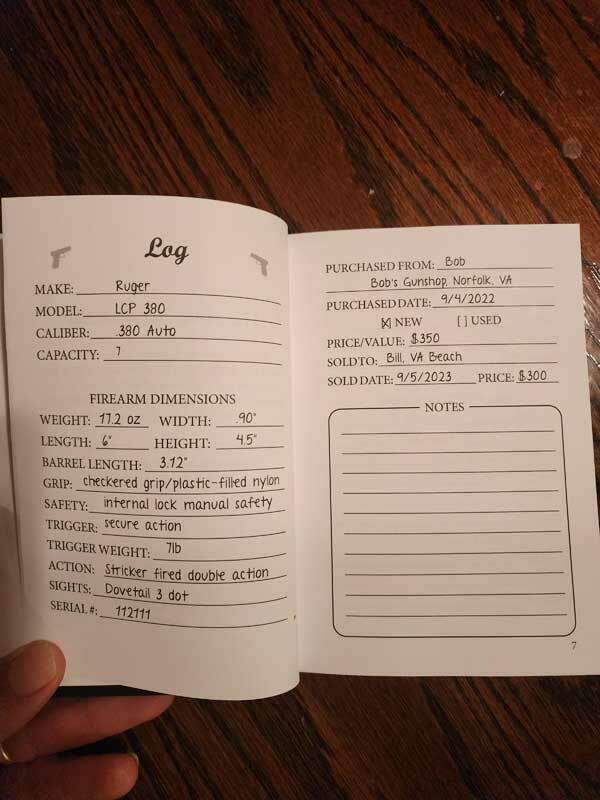 Log
MAKE: Ruger
MODEL: LCP 380
CALIBER: .380 Auto
CAPACITY: 7
FIREARM DIMENSIONS
WEIGHT: 17.2 oz WIDTH: .90"
LENGTH: 6" HEIGHT: 4.5"
BARREL LENGTH: 3.12"
GRIP: checkered grip/plastic-filled nylon
SAFETY: internal lock manual safety
TRIGGER: secure action
TRIGGER WEIGHT: 7lb
ACTION: Stricker fired double action
SIGHTS: Dovetail 3 dot
SERIAL #: 112111
PURCHASED FROM: Bob
Bob's Gunshop, Norfolk, VA
PURCHASED DATE: 9/4/2022
[X] NEW [ ] USED
PRICE/VALUE: $350
SOLD TO: Bill, VA Beach
SOLD DATE: 9/5/2023 PRICE: $300
NOTES
7